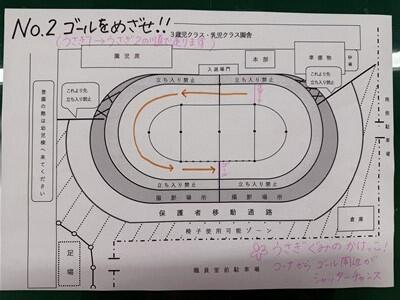 No.2 ゴールをめざせ!!
(うさぎ1→うさぎ2の順で走ります)
3歳児クラス・乳児クラス園舎
園児席
入退場門
本部
準備物
立ち入り禁止
立ち入り禁止
これより先
立ち入り禁止
これより先
立ち入り禁止
豊園の際は幼児棟
へ来てください
立ち入り禁止
立ち入り禁止
撮影場所
撮影場所
保護者移動通路
椅子使用可能ゾーン
倉庫
足場
職員室前駐車場
うさぎぐみのかけっこ!
コーナーからゴール周辺が
シャッターチャンス